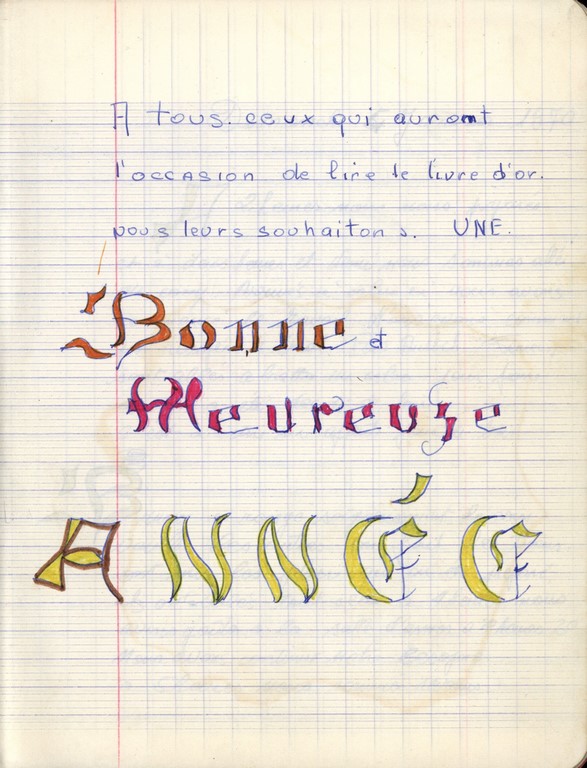 A tous. ceux qui auront
l'occasion de lire le livre d'or.
nous leurs souhaitons. UNE.
Bonne et
Heureuze
ANNÉE